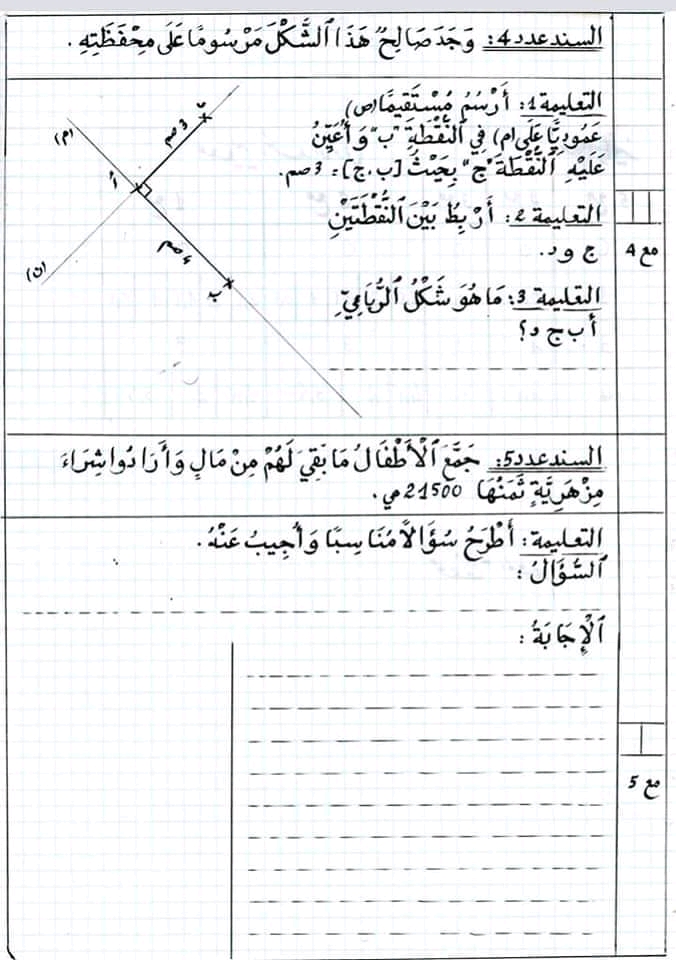 السند عدد 4: وَجَدَ صَالِحٌ هَذَا ٱلشَّكْلَ مَرْسُومًا عَلَى مِحْفَظَتِهِ.
التعليمة 1: أَرْسُمُ مُسْتَقِيمًا (ص)
عَمُودِيًّا عَلَى (م) فِي ٱلنُّقْطَةِ "ب" وَأُعَيِّنُ
عَلَيْهِ ٱلنُّقْطَةَ "ج" بِحَيْثُ [ب،ج] = 3 صم.
التعليمة 2: أَرْبِطُ بَيْنَ ٱلنُّقْطَتَيْنِ
ج و د.
التعليمة 3: مَا هُوَ شَكْلُ ٱلرُّبَاعِيِّ
أ ب ج د؟
(م)
3 صم
د
أ
4 صم
(ن)
ب
مع 4
السند عدد 5: جَمَّعَ ٱلْأَطْفَالُ مَا بَقِيَ لَهُمْ مِنْ مَالٍ وَأَرَادُوا شِرَاءَ
مِزْهَرِيَّةٍ ثَمَنُهَا 21500 مي.
التعليمة: أَطْرَحُ سُؤَالًا مُنَاسِبًا وَأُجِيبُ عَنْهُ.
ٱلسُّؤَالُ:
ٱلْإِجَابَةُ:
مع 5